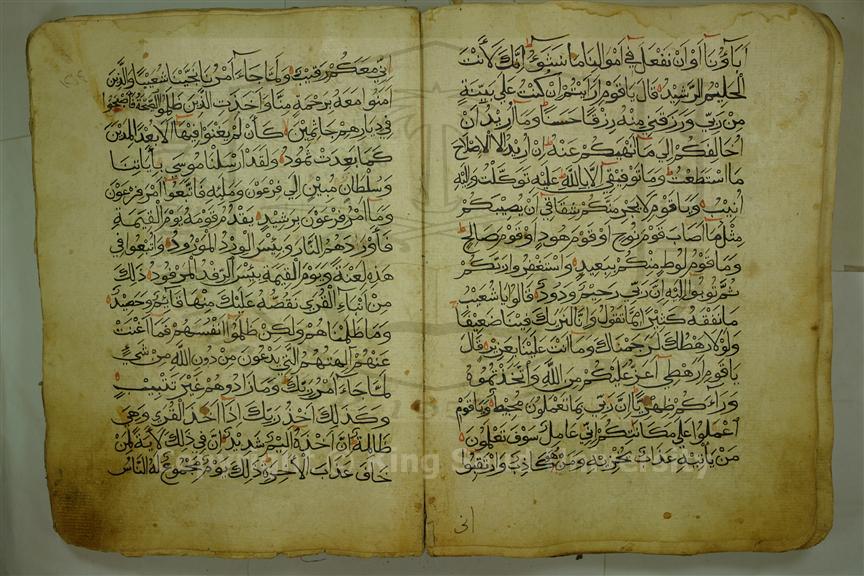 آباؤنا أو أن نفعل في أموالنا ما نشؤا إنك لأنت
الحليم الرشيد قال يا قوم أرايتم إن كنت على بينة
من ربي ورزقني منه رزقا حسنا وما أريد أن
أخالفكم إلى ما أنهيكم عنه إن أريد إلا الإصلاح
ما استطعت وما توفيقي إلا بالله عليه توكلت وإليه
أنيب ويا قوم لا يجرمنكم شقاقي أن يصيبكم
مثل ما أصاب قوم نوح أو قوم هود أو قوم صالح
وما قوم لوط منكم ببعيد واستغفروا ربكم
ثم توبوا إليه إن ربي رحيم ودود قالوا يا شعيب
ما نفقه كثيرا مما تقول وإنا لنريك فينا ضعيفا
ولولا رهطك لرجمناك وما أنت علينا بعزيز قال
يا قوم أرهطي أعز عليكم من الله واتخذتموه
وراءكم ظهريا إن ربي بما تعملون محيط ويا قوم
اعملوا على مكانتكم إني عامل سوف تعلمون
من يأتيه عذاب يخزيه ومن هو كاذب وارتقبوا
إني
إني معكم رقيب ولما جاء أمرنا نجينا شعيبا والذين
آمنوا معه برحمة منا وأخذت الذين ظلموا الصيحة فأصبحوا
في ديارهم جاثمين كأن لم يغنوا فيها ألا بعدا لمدين
كما بعدت ثمود ولقد أرسلنا موسى بآياتنا
وسلطان مبين إلى فرعون وملئه فاتبعوا أمر فرعون
وما أمر فرعون برشيد يقدم قومه يوم القيمة
فأوردهم النار وبئس الورد المورود وأتبعوا في
هذه لعنة ويوم القيمة بئس الرفد المرفود ذلك
من أنباء القرى نقصه عليك منها قائم وحصيد
وما ظلمناهم ولكن ظلموا أنفسهم فما أغنت
عنهم آلهتهم التي يدعون من دون الله من شيء
لما جاء أمر ربك وما زادوهم غير تتبيب
وكذلك أخذ ربك إذا أخذ القرى وهي
ظالمة إن أخذه أليم شديد إن في ذلك لآية لمن
خاف عذاب الآخرة ذلك يوم مجموع له الناس